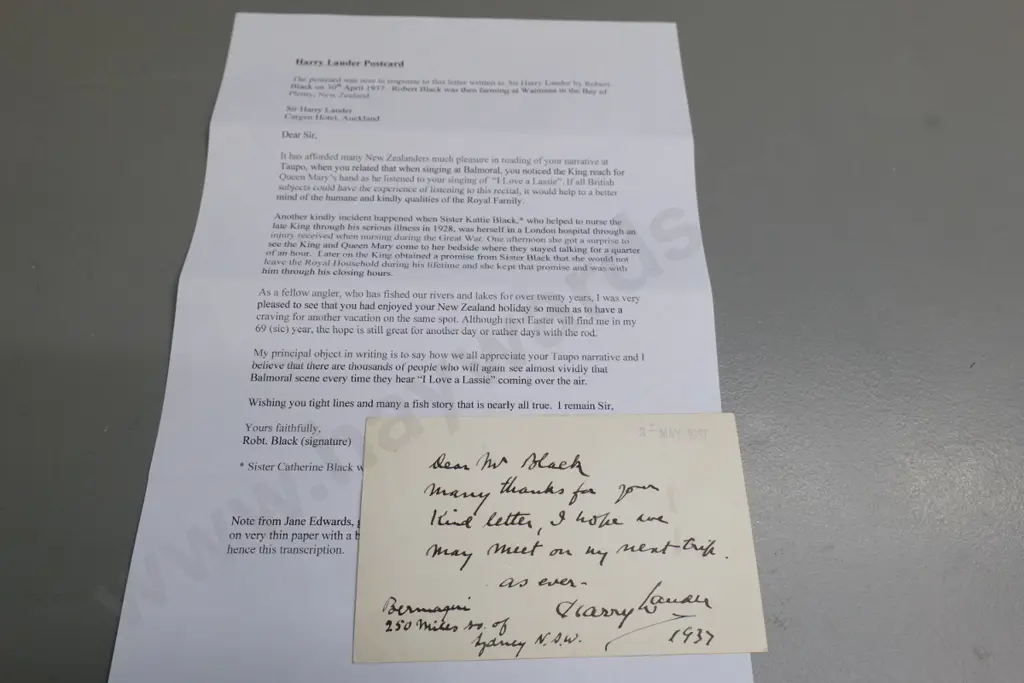 Harry Lauder Postcard
The postcard was sent in response to this letter written to Sir Harry Lauder by Robert
Black on 30th April 1937. Robert Black was then farming at in the Bay of
Plenty, New Zealand
Sir Harry Lauder
Cargen Hotel, Auckland
Dear Sir,
It has afforded many New Zealanders much pleasure in reading of your narrative at
Taupo, when you related that when singing at Balmoral, you noticed the King reach for
Queen Mary's hand as he listened to your singing of "I Love a Lassie". If all British
subjects could have the experience of listening to this recital, it would help to a better
mind of the humane and kindly qualities of the Royal Family.
Another kindly incident happened when Sister Kattie Black,* who helped to nurse the
late King through his serious illness in 1928, was herself in a London hospital through an
injury received when nursing during the Great War. One afternoon she got a surprise to
see the King and Queen Mary come to her bedside where they stayed talking for a quarter
of an hour. Later on the King obtained a promise from Sister Black that she would not
leave the Royal Household during his lifetime and she kept that promise and was with
him through his closing hours.
As a fellow angler, who has fished our rivers and lakes for over twenty years, I was very
pleased to see that you had enjoyed your New Zealand holiday so much as to have a
craving for another vacation on the same spot. Although next Easter will find me in my
69 (sic) year, the hope is still great for another day or rather days with the rod.
My principal object in writing is to say how we all appreciate your Taupo narrative and I
believe that there are thousands of people who will again see almost vividly that
Balmoral scene every time they hear "I Love a Lassie" coming over the air.
Wishing you tight lines and many a fish story that is nearly all true. I remain Sir,
Yours faithfully,
Robt. Black (signature)
* Sister Catherine Black w
Note from Jane Edwards, g
on very thin paper with a b
hence this transcription.
MAY 1937
Dear Mr Black
Many thanks for your
Kind letter, I hope we
may meet on my next trip.
as ever-
Harry Lauder
1937
Bermagui
250 Miles so. of
Sydney N.S.W.
www.haywards